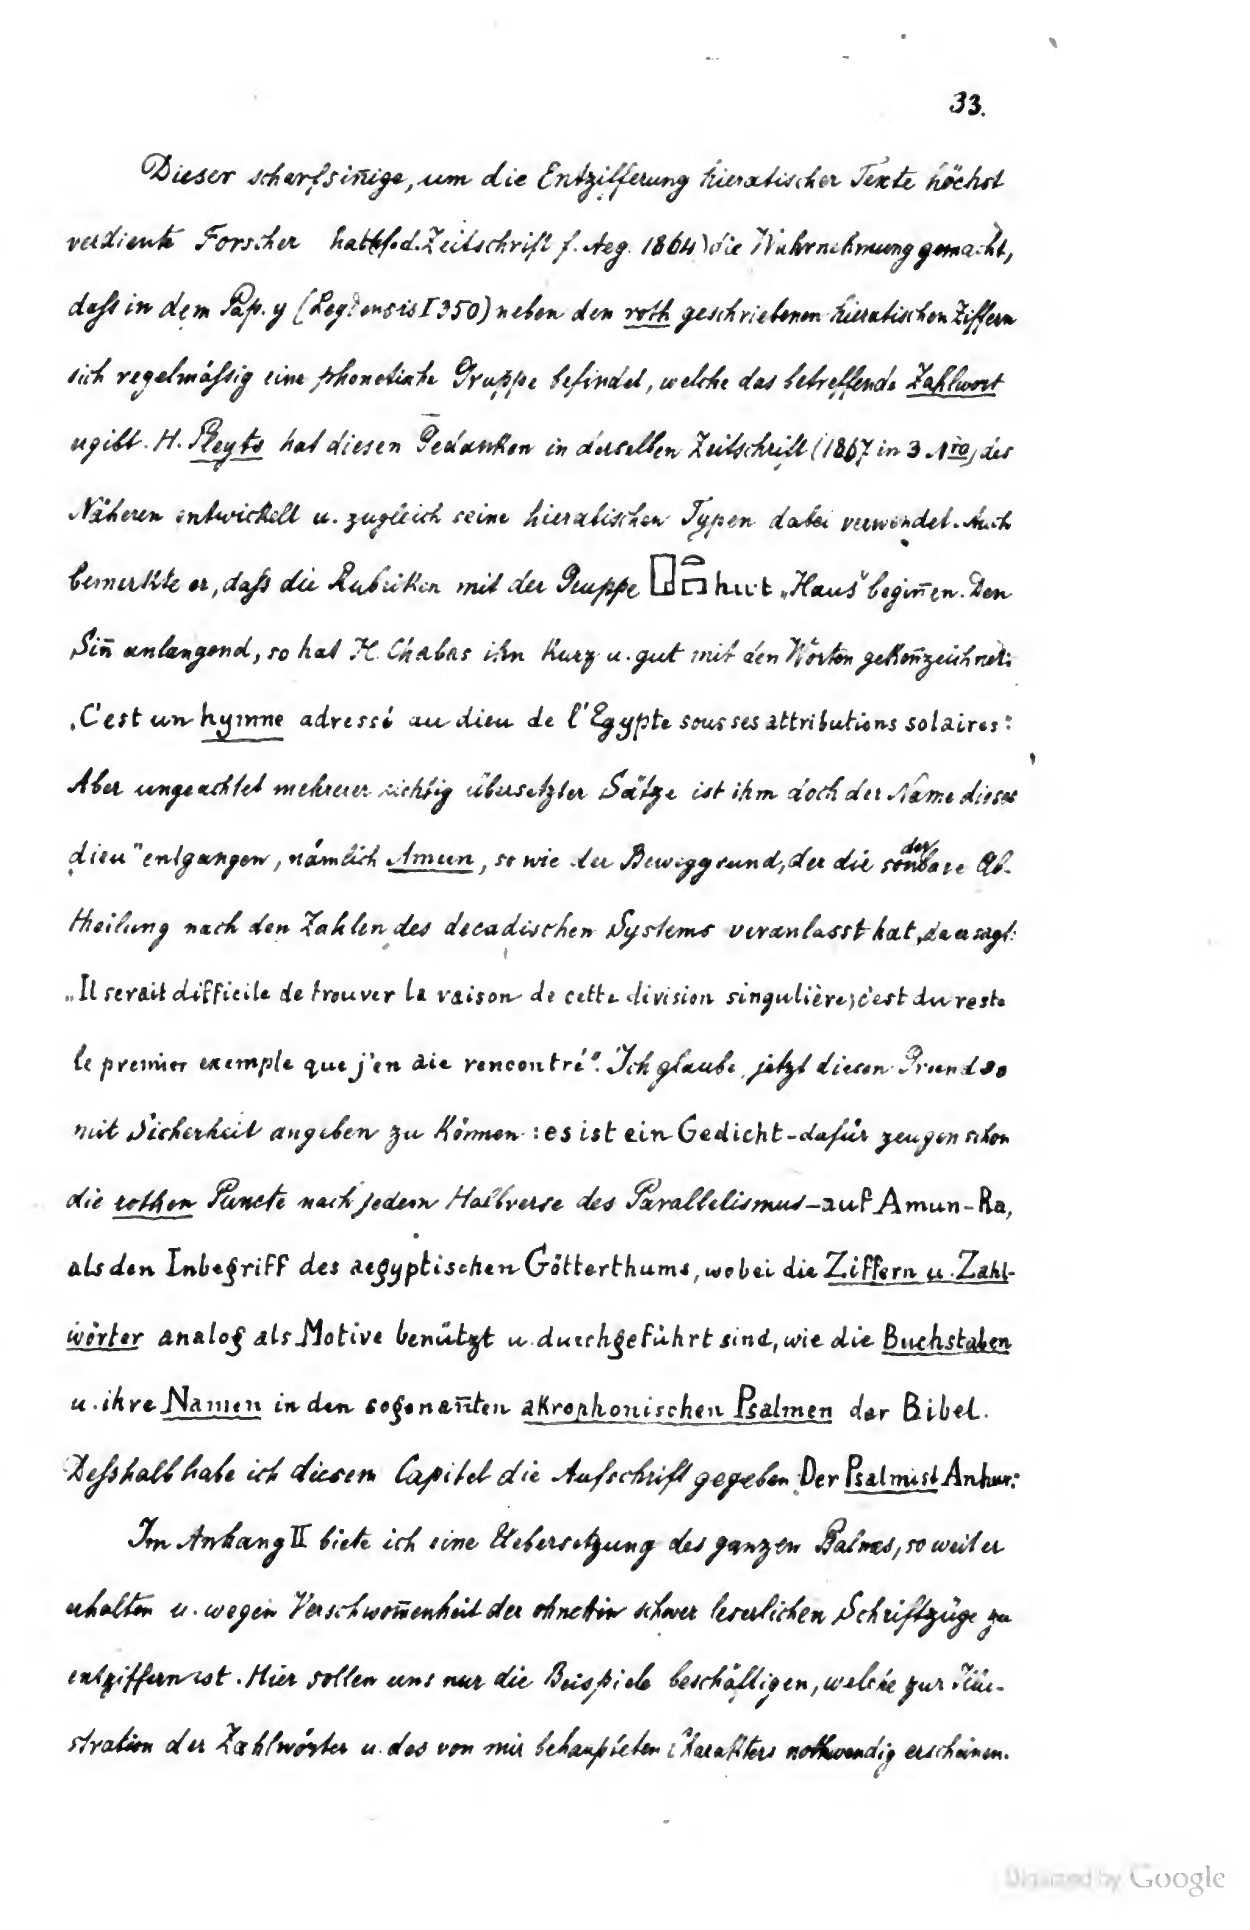 33.
Dieser scharfsin̄ige, um die Entzifferung hieratischer Texte höchst
verdiente Forscher hat (f. d. Zeitschrift f. Aeg. 1864) die Wahrnehmung gemacht,
daſs in dem Pap. y (Leydensis I 350) neben den roth geschriebenen hieratischen Ziffern
sich regelmäſsig eine phonetische Gruppe befindet, welche das betreffende Zahlwort
ergibt. H. Pleyte hat diesen Gedanken in derselben Zeitschrift (1867 in 3 Nro) des
Näheren entwickelt u. zugleich seine hieratischen Typen dabei verwendet. Auch
bemerkte er, daſs die Rubriken mit der Gruppe hut „Haus“ begin̄en. Den
Sin̄ anlangend, so hat H. Chabas ihn kurz u. gut mit den Worten geken̄zeichnet:
„C'est un hymne adressé au dieu de l'Egypte sous ses attributions solaires“:
Aber ungeachtet mehrerer richtig übersetzter Sätze ist ihm doch der Name dieses
„dieu“ entgangen, nämlich Amun, so wie der Beweggrund, der die sonderbare Ab-
theilung nach den Zahlen des decadischen Systems veranlasst hat, da er sagt:
„Il serait difficile de trouver la raison de cette division singulière; c'est du reste
le premier exemple que j'en aie rencontré“. Ich glaube jetzt diesen Grund so
mit Sicherheit angeben zu können: es ist ein Gedicht – dafür zeugen schon
die rothen Puncte nach jedem Halbverse des Parallelismus – auf Amun-Ra,
als den Inbegriff des aegyptischen Götterthums, wobei die Ziffern u. Zahl-
wörter analog als Motive benützt u. durchgeführt sind, wie die Buchstaben
u. ihre Namen in den sogenan̄ten akrophonischen Psalmen der Bibel.
Deſshalb habe ich diesem Capitel die Aufschrift gegeben: „Der Psalmist Anhur“:
Im Anhang II biete ich eine Uebersetzung des ganzen Psalmes, so weit er
erhalten u. wegen Verschwom̄enheit der ohnehin schwer leserlichen Schriftzüge zu
entziffern ist. Hier sollen uns nur die Beispiele beschäftigen, welche zur Illu-
stration der Zahlwörter u. des von mir behaupteten Charakters nothwendig erscheinen.
Digitized by Google